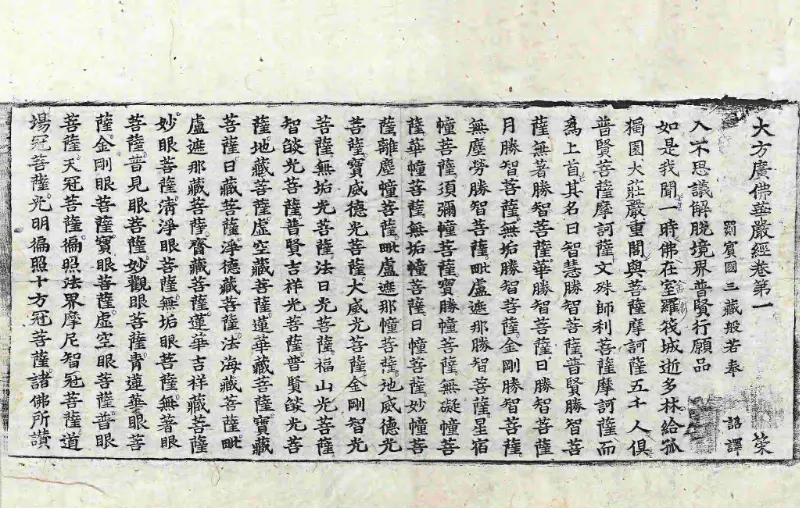 大方廣佛華嚴經卷第一　榮
罽賓國三藏般若奉　詔譯
入不思議解脫境界普賢行願品
如是我聞一時佛在室羅筏城逝多林給孤
獨園大莊嚴重閣與菩薩摩訶薩五千人俱
普賢菩薩摩訶薩文殊師利菩薩摩訶薩而
為上首其名曰智慧勝智菩薩普賢勝智菩
薩無著勝智菩薩華勝智菩薩日勝智菩薩
月勝智菩薩無垢勝智菩薩金剛勝智菩薩
無塵勞勝智菩薩毗盧遮那勝智菩薩星宿
幢菩薩須彌幢菩薩寶勝幢菩薩無礙幢菩
薩華幢菩薩無垢幢菩薩日幢菩薩妙幢菩
薩離塵幢菩薩毗盧遮那幢菩薩地威德光
菩薩寶威德光菩薩大威光菩薩金剛智光
菩薩無垢光菩薩法日光菩薩福山光菩薩
智燄光菩薩普賢吉祥光菩薩普賢燄光菩
薩地藏菩薩虛空藏菩薩蓮華藏菩薩寶藏
菩薩日藏菩薩淨德藏菩薩法海藏菩薩毗
盧遮那藏菩薩齎藏菩薩蓮華吉祥藏菩薩
妙眼菩薩清淨眼菩薩無垢眼菩薩無著眼
菩薩普見眼菩薩妙觀眼菩薩青蓮華眼菩
薩金剛眼菩薩寶眼菩薩虛空眼菩薩普眼
菩薩天冠菩薩徧照法界摩尼智冠菩薩道
場冠菩薩光明徧照十方冠菩薩諸佛所讚